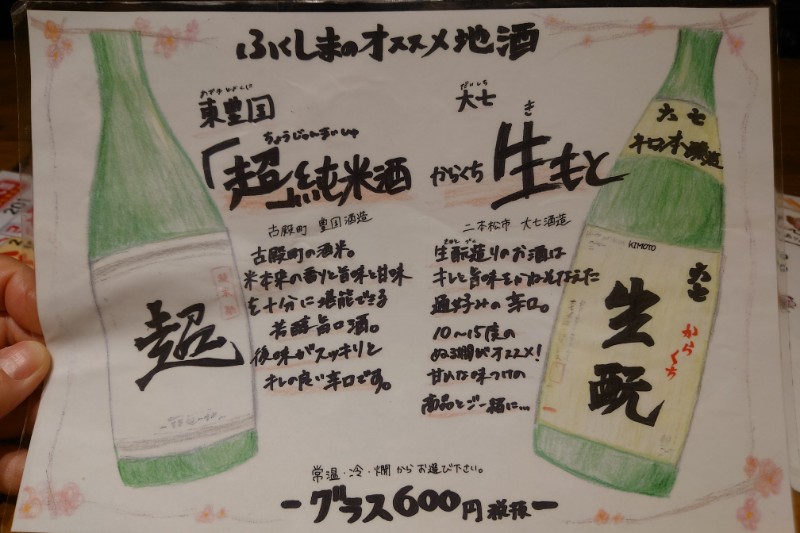 ふくしまのオススメ地酒
あずまとよくに
東豊国
ちょうじゅんまいしゅ
「超」純米酒
古殿町 豊国酒造
古殿町の酒米。
米本来の香りと旨味と甘味
を十分に堪能できる
芳醇旨口酒。
後味がスッキリと
キレの良い辛口です。
だいしち
大七
き
からくち 生もと
二本松市 大七酒造
生酛造りのお酒は
キレと旨味をかねそなえた
通好みの辛口。
10〜15度の
ぬる燗がオススメ!
甘めな味つけの
商品とご一緒に...
超
純米酒
大七
キモト
KIMOTO
大七
生酛
からくち
常温・冷・燗からお選び下さい。
-グラス600円税抜-